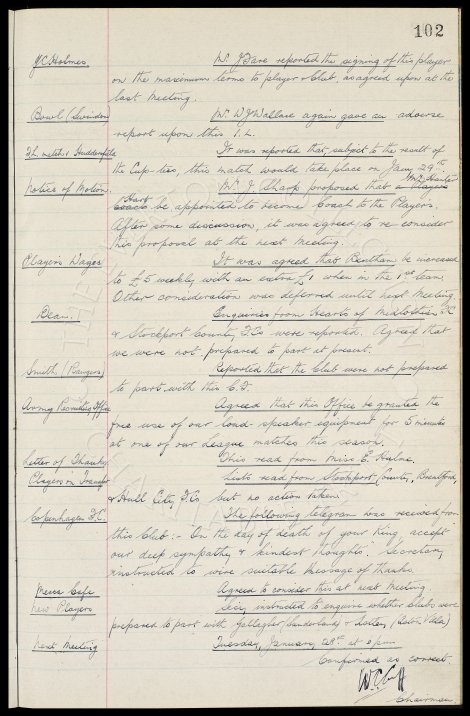 102
J C Holmes Mr. J Bare reported the signing of this player
on the maximum terms to player & Club, as agreed upon at the
last Meeting.
Bowl (Swindon) Mr. W J Wallace again gave an adverse
report upon this I.L.
F.L. match v Huddersfield It was reported that, subject to the result of
the Cup-ties, this match would take place on Jany 29th
Notice of Motion. Mr. J. Sharp proposed that a Players
Coach be appointed to become Coach to the Players.
After some discussion, it was agreed to re-consider
this proposal at the next Meeting.
Players Wages It was agreed that Bentham be increased
to £5 weekly with an extra £1 when in the 1st team.
Other consideration was deferred until next Meeting.
Dean. Enquiries from Hearts of Midlothian FC
& Stockport County F.Cs were reported. Agreed that
we were not prepared to part at present.
Smith (Rangers) Reported that the Club were not prepared
to part with this C.F.
Army Recruiting Office Agreed that this Office be granted the
free use of our loud-speaker equipment for 5 minutes
at one of our League matches this season.
Letter of Thanks This read from Miss E. Hulme.
Players on Transfer Lists read from Stockport County, Brentford,
& Hull City F.Cs but no action taken.
Copenhagen F.C. The following telegram was received from
this Club:- On the day of death of your King accept
our deep sympathy & kindest thoughts. Secretary
instructed to wire suitable message of thanks.
Mecca Cafe Agreed to consider this at next Meeting
New Players Secy. instructed to enquire whether Clubs were
prepared to part with Gallagher (Sunderland) & (Aston Villa)
Next Meeting Tuesday, January 28th at
Confirmed as correct.
W.C. Cuff
Chairman